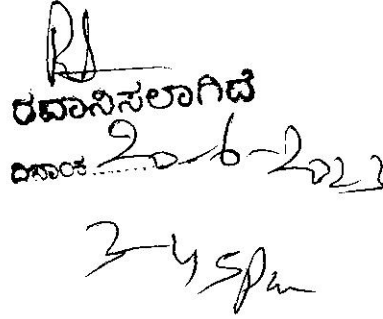 ರವಾನಿಸಲಾಗಿದೆ
ದಿನಾಂಕ 20-6-2023
3-45pm